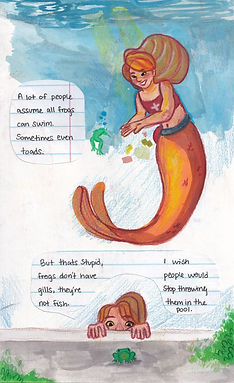 A lot of people
assume all frogs
can swim.
Sometimes even
toads.
But thats stupid,
frogs don't have
gills, they're
not fish.
I wish
people would
stop throwing
them in the
pool.